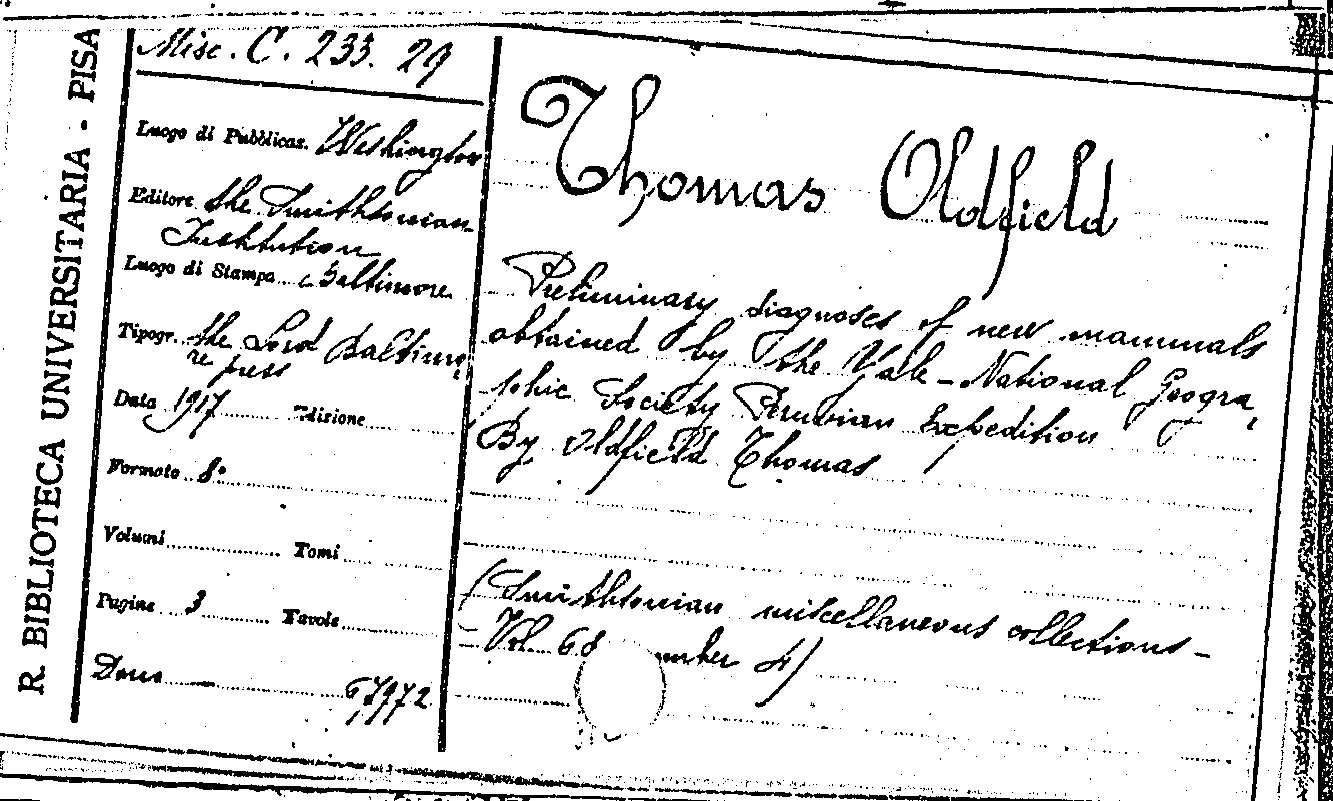 R. BIBLIOTECA UNIVERSITARIA - PISA
Misc. C. 233. 29
Luogo di Pubblicaz. Washington
Editore the Smithsonian
Institution
Luogo di Stampa Baltimore
Tipogr. the Lord Baltimo
re press
Data 1917 Edizione
Formato 8°
Volumi Tomi
Pagine 3 Tavole
Dono — 67972
Thomas Oldfield
Preliminary diagnoses of new mammals
obtained by the Yale-National Geogra
phic Society Peruvian Expedition
By Oldfield Thomas
(Smithsonian miscellaneous collections -
- Vol. 68 umber 4)